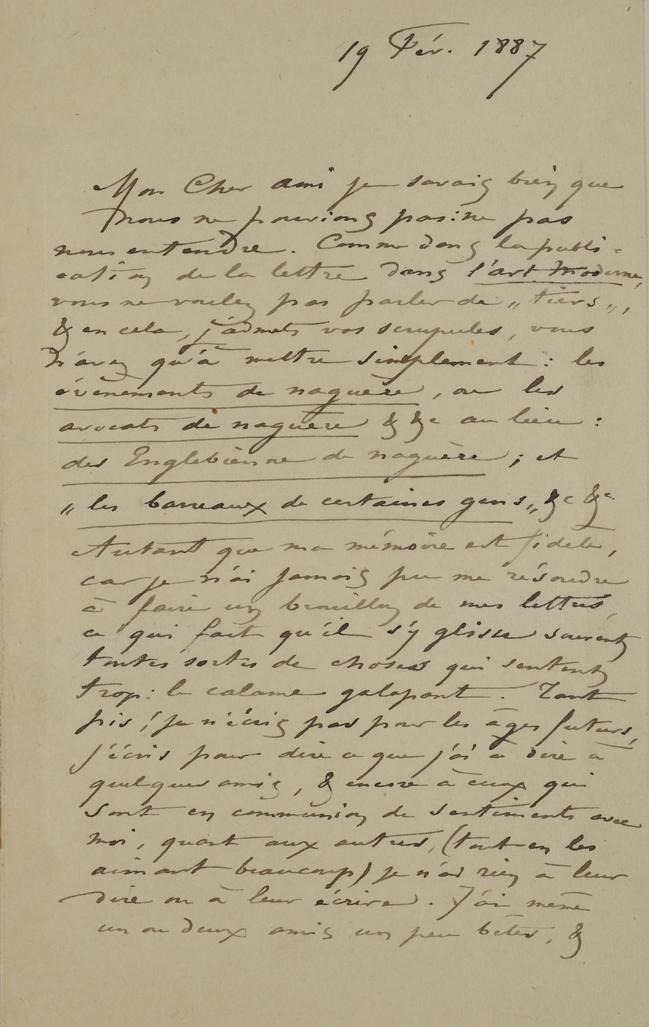 19 Fév. 1887
Mon Cher ami je savais bien que
nous ne pouvions pas ne pas
nous entendre. Comme dans la publi=
cation de la lettre dans l'art Moderne,
vous ne voulez pas parler de „tiers„,
& en cela, j'admets vos scrupules, vous
n'avez qu'à mettre simplement : les
évènements de naguère, ou les
avocats de naguère & &c au lieu :
des Englebienne de naguère ; et
„les barreaux de certaines gens„ &c &c
Autant que ma mémoire est fidèle,
car je n'ai jamais pu me résoudre
à faire un brouillon de mes lettres,
ce qui fait qu'il s'y glisse souvent
toutes sortes de choses qui sentent
trop : le calame galopant. Tant
pis ! je n'écris pas pour les âges futurs,
j'écris pour dire ce que j'ai à dire à
quelques amis, & encore à ceux qui
sont en communion de sentiments avec
moi, quant aux autres, (tout en les
aimant beaucoup) je n'ai rien à leur
dire ou à leur écrire. J'ai même
un ou deux amis un peu bêtes, &